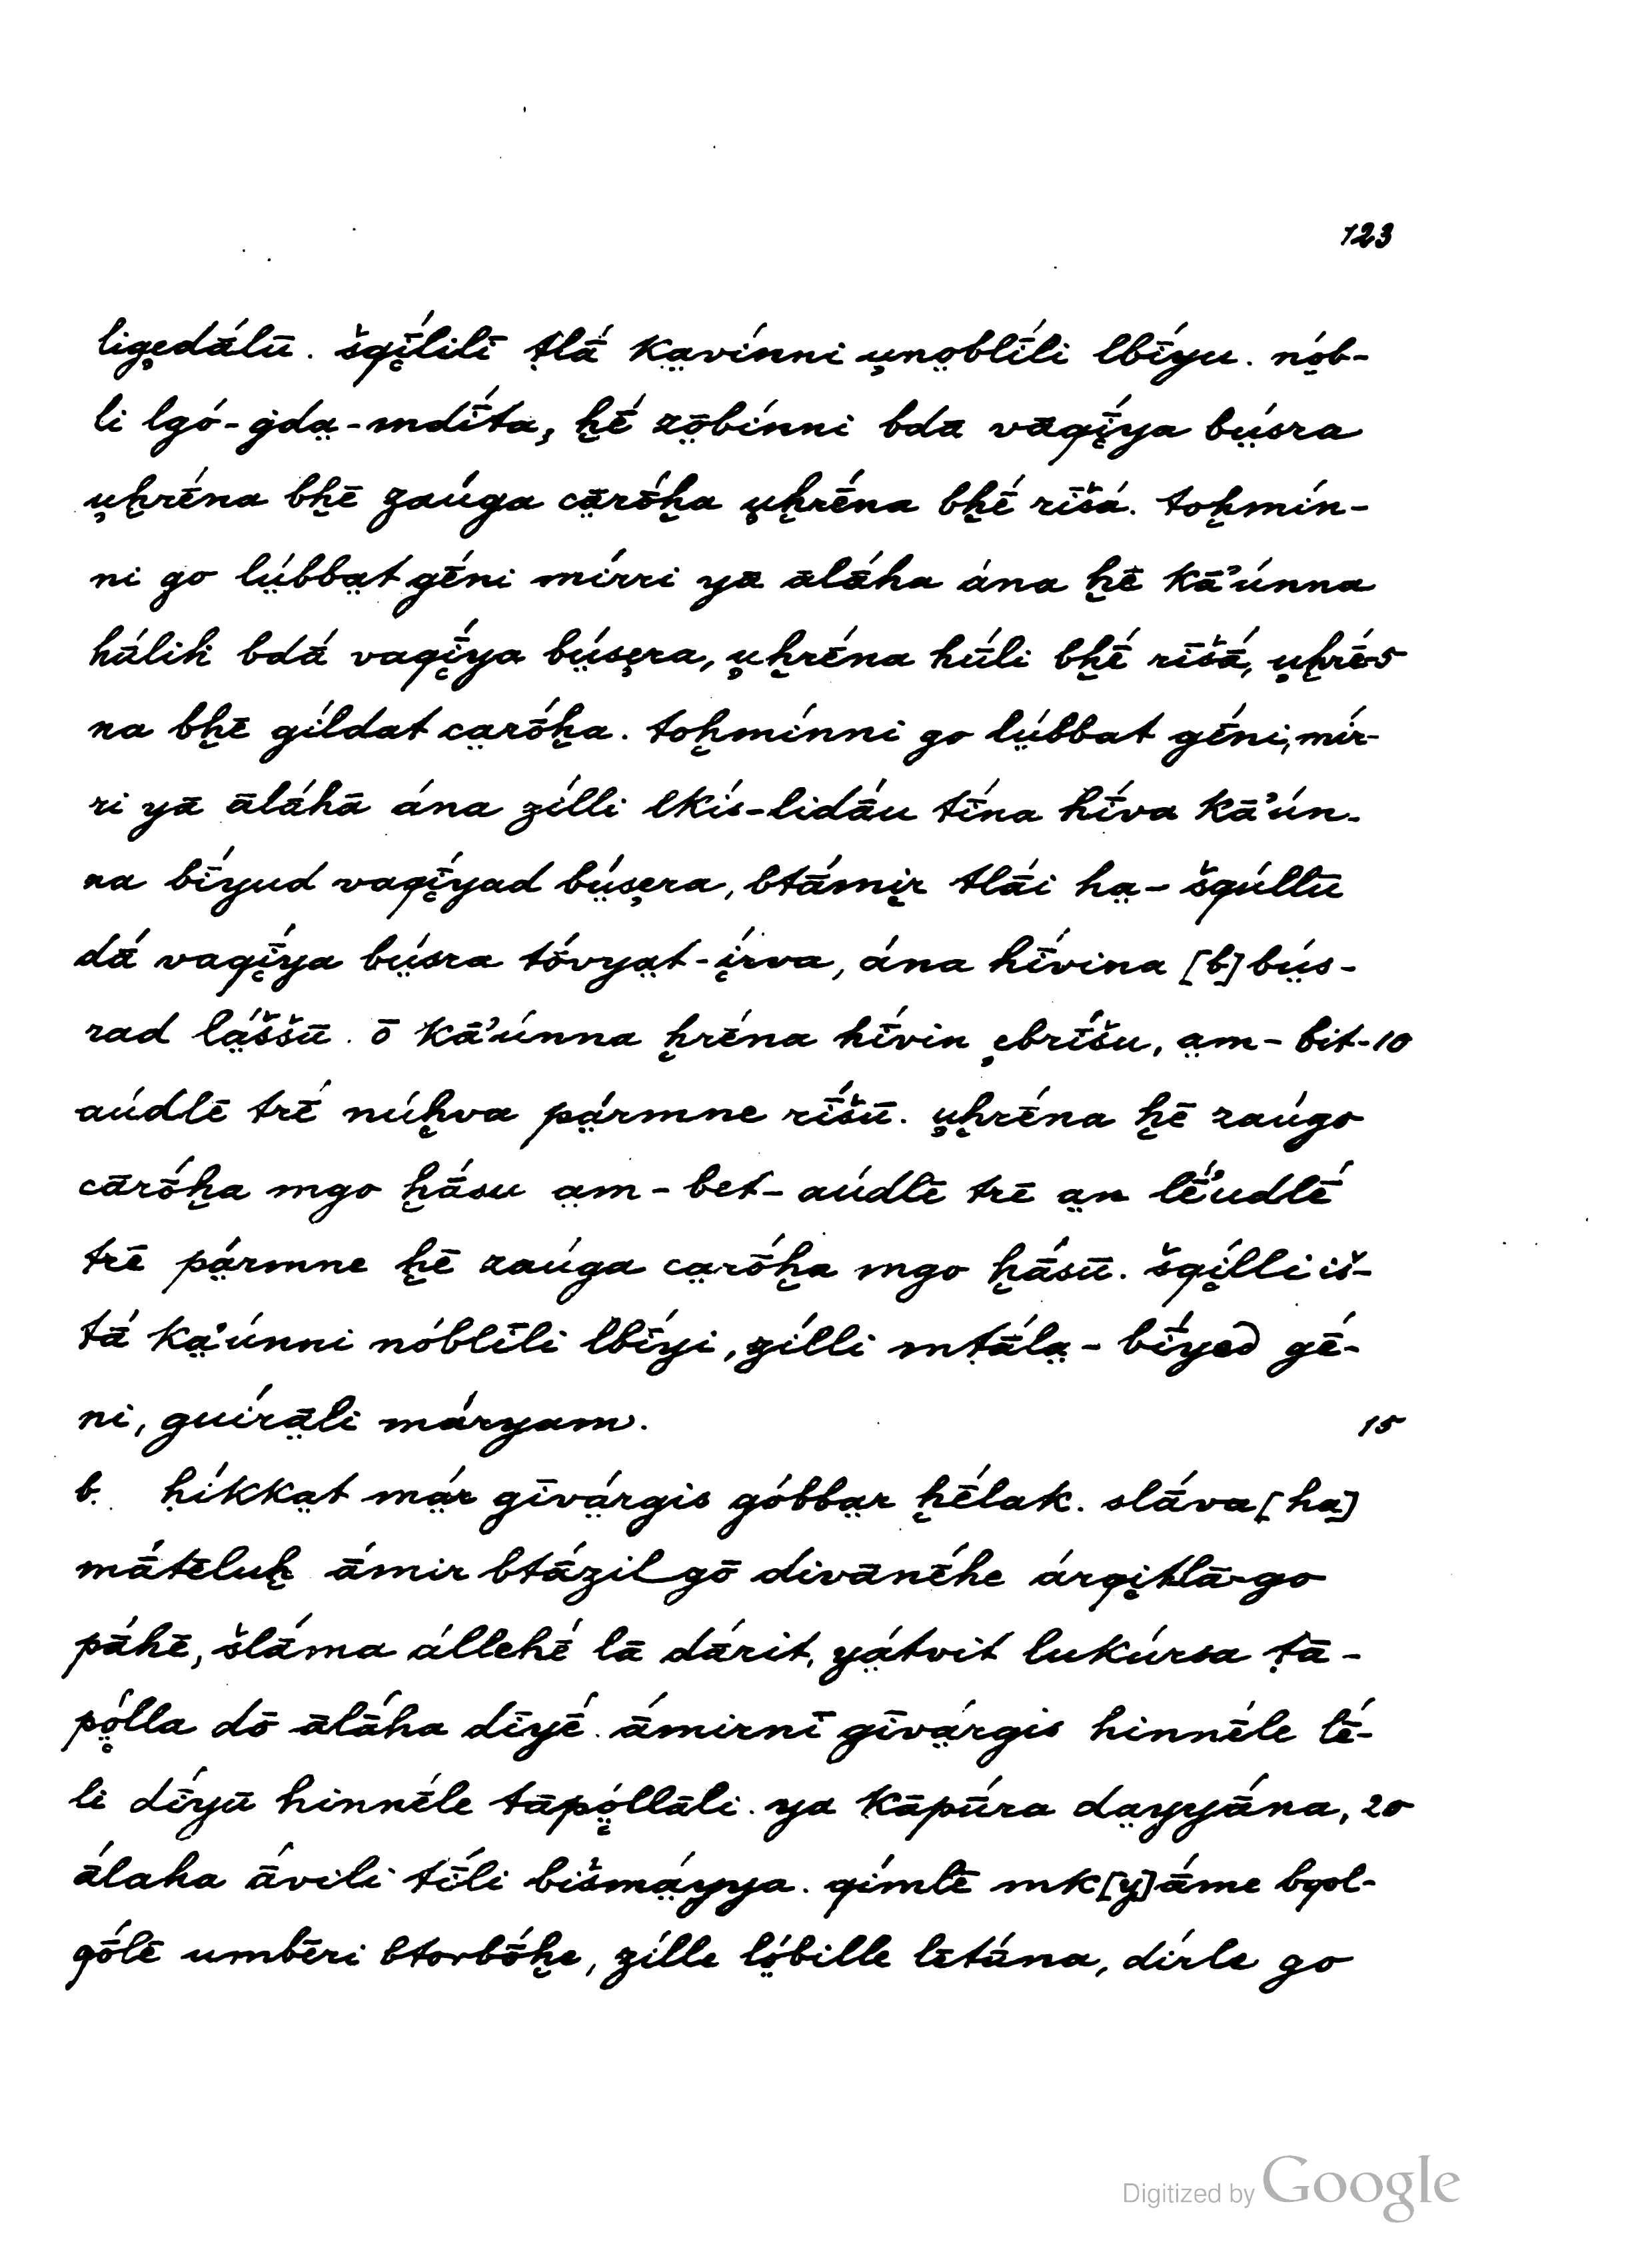 123
ligẹdā́lū. šqị̄́lilī ṭlā́ kạvínni ụnọblī́li lbī́yu. nọ́b-
li lgó-ġdạ-mdī́ta, ḫḗ zọ̄bínni bdā vāqị̄́ya bụ́sra
ụḫrḗna bḫē zaúga cạ̄rṓḫa ụḫrḗna bḫḗ rīšá. toḫmín-
ni go lụ́bbạt gḗni mírri yā ālā́ha ána ḫē kā’únna
hū́liḣ bdā́ vaqị̄́ya bụ́sẹra, ụḫrḗna hū́li bḫḗ rīšā́, ụḫrḗ- 5
na bḫē gíldat cạrṓḫa. toḫmínni go lụ́bbat gḗni, mír-
ri yā ālā́hā ána zílli lkís-lidā́u tī́na hī́va kā’ún-
na bī́yud vaqị̄́yad bụ́sẹra, btā́mịr ṭlā́i hạ-šqúllū
dā́ vaqị̄́ya bụ́sra ṭṓvyạt-ị́rva, ána hī́vina [b] bụ́s-
rad lạ́ššū. ō kā’únna ḫrḗna hī́vin ẹbrī́šu, ạm-bit- 10
aúdlē trḗ núḫva pạ́rmne rī́šū. ụḫrḗna ḫē zaúgo
cārṓḫa mgo ḫā́su ạm-bet-aúdlē trē ạn lḗ’udlḗ
trē pạ́rmne ḫē zaúga cạrṓḫa mgo ḫā́sū. šqị́lli iš-
tā́ kạ’únni nóblī́li lbī́yi, zílli mṭā́lạ-bī́yed gḗ-
ni, guírạ̄li máryam. 15
b. ḥíkkạt mạ́r gīvạ́rgis góbbạr ḫḗlak. slā́va [hạ]
mā́tēluḫ ā́mir btā́zil gō divānḗhe árqịtlā-go
pā́hē, šlā́ma állehḗ lā dā́rit, yạ́tvit lukúrsa ṭā-
pọ́lla dō ālā́ha dīyḗ. ā́mirnī gīvạ́rgis hinnḗle lḗ-
li dī́yū hinnḗle ṭāpọ́llāli. ya kāpū́ra dạyyā́na, 20
ā́laha ā́vili tī́li bišmạ́yya. qímlē mk[y]ā́me bqol-
qṓlē umbēri btorbṓḫe, zílle lọ́bille lētū́na, dírle go
Digitized by Google